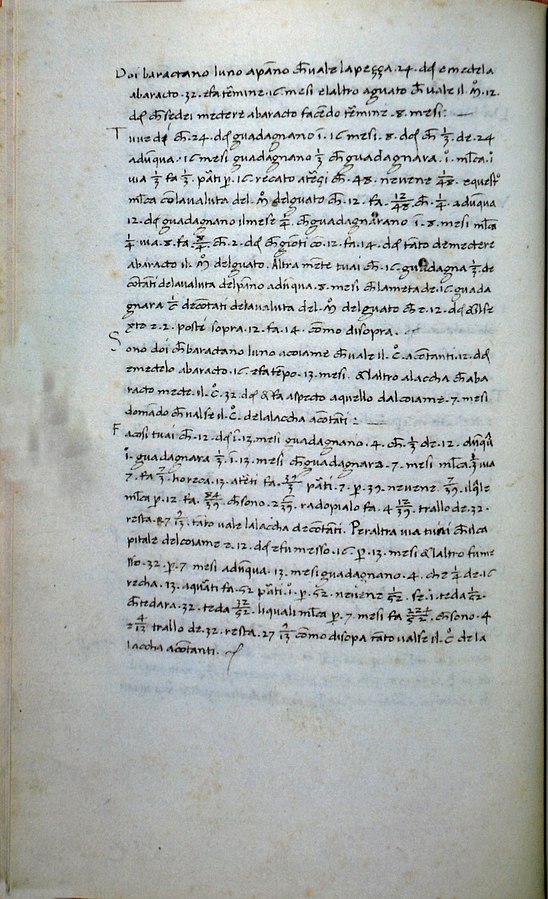 Doi baractano luno a pāno ch̄ vale la peçça .24. dcī e mectela
a baracto .32. e fa tēmine .16. mesi el altro a guato ch̄ vale il m̊. 12.
dcī ch̄ se dei mectere a baracto facēdo tēmine .8. mesi:
Tu vedi ch̄ .24. dcī guadagnano ī .16. mesi .8. dcī ch̄ 1/3 de .24
adūqua .16. mesi guadagnano 1/3 ch̄ guadagnara .i. mļca .i.
via 1/3 fa 1/3. pāti p. 16. recato a tēçi ch̄ .48. nevene 1/48. e questo
mļca con la valuta del m̊ del guato ch̄ .12. fa. 12/48. ch̄ 1/4. adūqua
12. dcī guadagnano il mese 1/4. ch̄ guadagnarano ī .8. mesi mļca
1/4 via .8. fa 8/4 ch̄ 2. dcī ch̄ giōti cō .12. fa .14. dcī tāto de mectere
a baracto il m̊ del guato. Altra mēte tu ai ch̄ .16. guadagna 1/3 de
cōtāti de la valuta del pāno adūqua .8. mesi ch̄ la meta de .16. guada
gnara 1/6 de cōtāti de la valuta del m̊ del guato ch̄ e .12. dcī el se
xto e .2. posto sopra .12. fa .14. cōmo di sopra.
Sono doi ch̄ baractano luno a coiame ch̄ vale il .c̊. a cōtanti .12. dcī
e mectelo a baracto .16. e fa tēpo .13. mesi. & laltro a laccha ch̄ a ba
racto mecte il .c̊. 32. dcī & fa aspecto a quello dal coiame .7. mesi
domādo ch̄ valse il .c̊. de la laccha a cōtāti:
Fa cosi tu ai ch̄ .12. dcī ī .13. mesi guadagnano .4. ch̄ 1/3 de .12. dūqua
.i. guadagnara 1/3 ī .13. mesi ch̄ guadagnara .7. mesi mļca 1/3 via
7. fa 7/3 hor eca .13. a tēçi fa 39/3 pāti .7. p. 39. nevene 7/39. il q̄le
mļca p. 12. fa 84/39 ch̄ sono .2 6/39. radopialo fa .4 12/39. trallo de .32.
resta .27 9/13. tāto vale la laccha de cōtanti. Per altra via tu ai ch̄ il ca
pitale del coiame e .12. dcī e fu messo .16. p. 13. mesi & laltro fu me
sso .32. p. 7. mesi adūqua .13. mesi guadagnano .4. che 1/4 de .16
recha .13. a quāti fa .52 pāti .i. p. 52. nevene 1/52. se .i. te da 1/52.
ch̄ te dara .32. te da 32/52. li quali mļca p. 7. mesi fa 224/52 ch̄ sono .4
e 4/13 trallo de .32. resta .27 9/13 cōmo di sopra tāto valse il .c̊. de la
laccha a cōtanti.